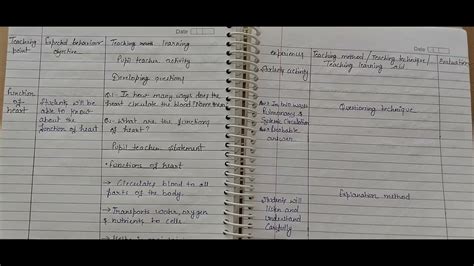 Date
Teaching point
Expected behaviour objective
Teaching learning
Pupil teacher activity
Developing questions
Function of heart
Students will be able to know about the function of heart
Q1- In how many ways does the heart circulate the blood
Q- What are the functions of heart?
Pupil teacher statement
• Functions of heart
→ Circulates blood to all parts of the body.
→ Transports water, oxygen & nutrients to cells.
Date
experiences
Teaching method / Teaching technique / Teaching learning aid
Evaluation
Students activity
In two ways Pulmonary & Systemic Circulation
Probable answer
Questioning technique
Explanation method
Students will listen and understand carefully